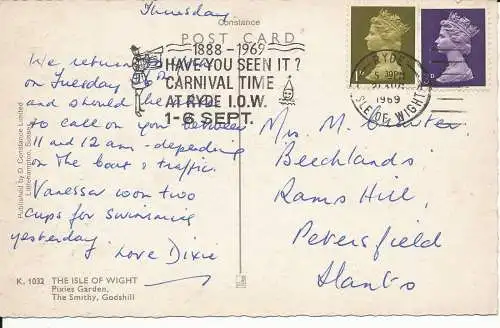 Thursday
Constance
POST CARD
1888-1969
HAVE YOU SEEN IT?
CARNIVAL TIME
AT RYDE I.O.W.
1-6 SEPT.
RYDE
5 30PM
1969
ISLE OF WIGHT
We return
on Tuesday
and should
to call on you between
11 and 12 am - depending
on the boat & traffic.
Vanessa won two
cups for swimming
yesterday
Love Dixie
Mrs. M.
Beechlands
Rams Hill,
Petersfield
Hants
Published by D. Constance Limited
Littlehampton, Sussex
K. 1032 THE ISLE OF WIGHT
Pixies Garden,
The Smithy, Godshill